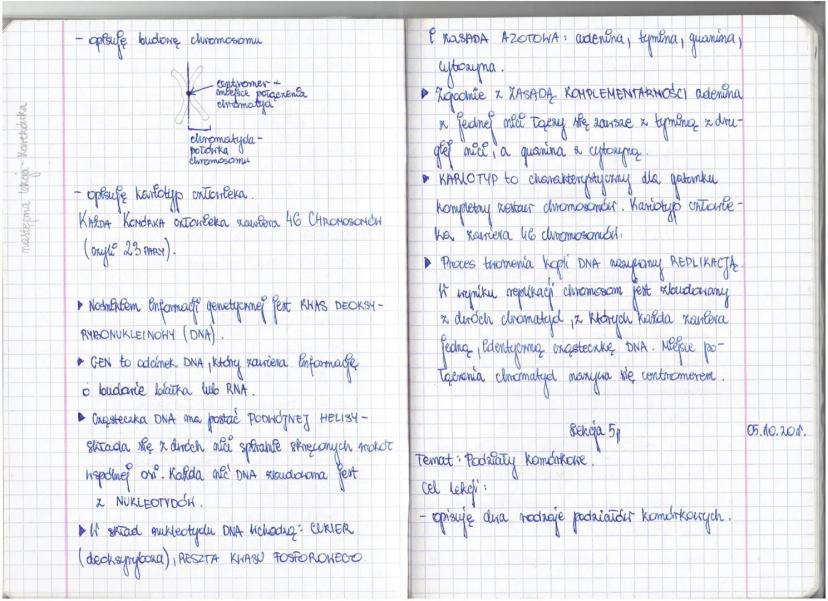 - opisuję budowę chromosomu
centromer -
miejsce połączenia
chromatyd
chromatyda -
połówka
chromosomu
następna lekcja - kartkówka
- opisuję kariotyp człowieka.
KAŻDA KOMÓRKA człowieka zawiera 46 CHROMOSOMÓW
(czyli 23 PARY).
▸ Nośnikiem informacji genetycznej jest KWAS DEOKSY-
RYBONUKLEINOWY (DNA).
▸ GEN to odcinek DNA, który zawiera informację
o budowie białka lub RNA.
▸ Cząsteczka DNA ma postać PODWÓJNEJ HELISY -
składa się z dwóch nici spiralnie skręconych wokół
wspólnej osi. Każda nić DNA zbudowana jest
z NUKLEOTYDÓW.
▸ W skład nukleotydu DNA wchodzą: CUKIER
(deoksyryboza), RESZTA KWASU FOSFOROWEGO
i ZASADA AZOTOWA: adenina, tymina, guanina,
cytozyna.
▸ Zgodnie z ZASADĄ KOMPLEMENTARNOŚCI adenina
z jednej nici łączy się zawsze z tyminą z dru-
giej nici, a guanina z cytozyną.
▸ KARIOTYP to charakterystyczny dla gatunku
kompletny zestaw chromosomów. Kariotyp człowie-
ka zawiera 46 chromosomów.
▸ Proces tworzenia kopii DNA nazywamy REPLIKACJĄ.
W wyniku replikacji chromosom jest zbudowany
z dwóch chromatyd, z których każda zawiera
jedną, identyczną cząsteczkę DNA. Miejsce po-
łączenia chromatyd nazywa się centromerem.
Lekcja 5
Temat: Podziały komórkowe.
Cel lekcji:
- opisuję dwa rodzaje podziałów komórkowych.